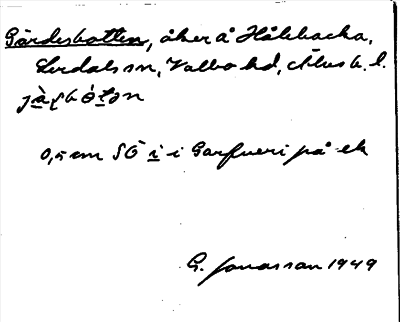 Gärdesbotten, åker å Hålebacka,
Lerdals sn, Valbo hd, Älvsb. l.
0,5 cm SÖ i i Garfueri på ek
G. Jonasson 1949